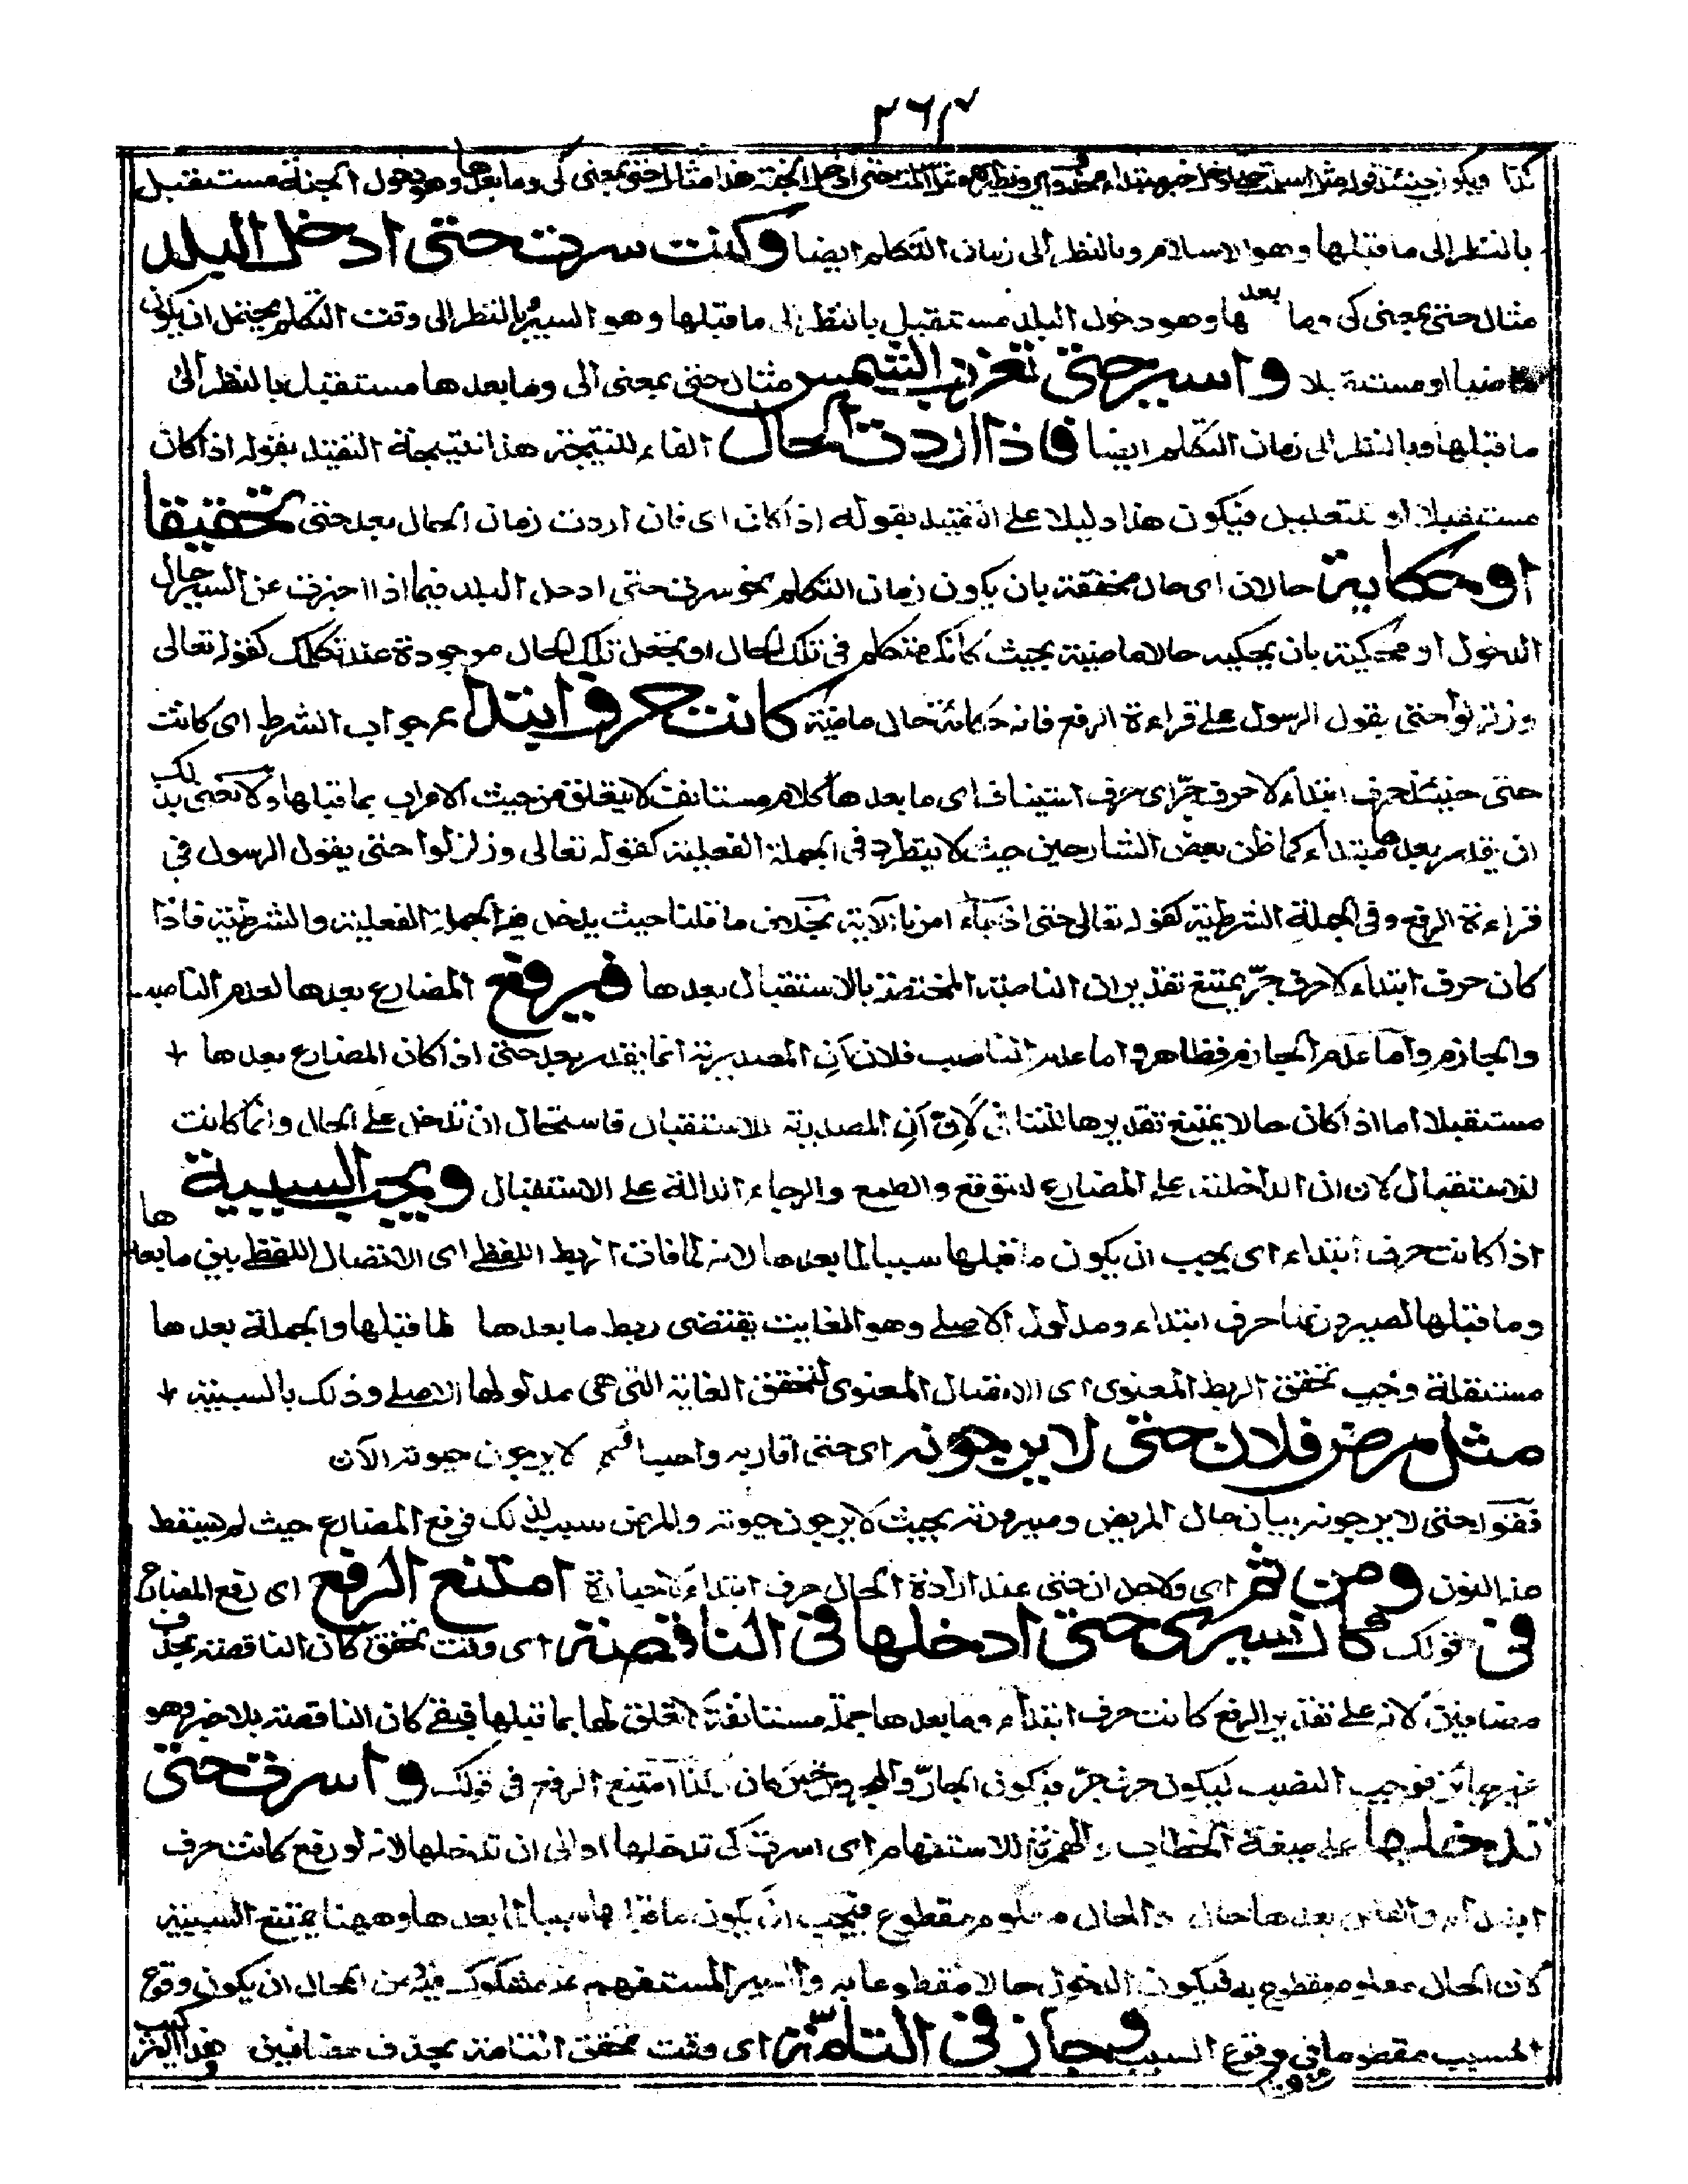 ٢٦٣
كذا ويكون حينئذ قوله مثل اسلمت حتى ادخل خبر مبتداء محذوف اى ونظيره مثل اسلمت حتى ادخل الجنة هذا مثال حتى بمعنى كى وما بعدها وهو دخول الجنة مستقبل
بالنظر الى ما قبلها وهو الاسلام وبالنظر الى زمان التكلم ايضا وكنت سرت حتى ادخل البلد
مثال حتى بمعنى كى وما بعدها وهو دخول البلد مستقبل بالنظر الى ما قبلها وهو السير وبالنظر الى وقت التكلم يحتمل ان يكون
ماضيا او مستقبلا واسير حتى تغرب الشمس مثال حتى بمعنى الى وما بعدها مستقبل بالنظر الى
ما قبلها وبالنظر الى زمان التكلم ايضا فاذا اردت الحال الفاء للنتيجة هذا نتيجة التقييد بقوله اذا كان
مستقبلا او للتعليل فيكون هذا دليلا على التقييد بقوله اذا كان اى فان اردت زمان الحال بعد حتى تحقيقا
او حكاية حالان اى حال محققة بان يكون زمان التكلم نحو سرت حتى ادخل البلد فيما اذا اخبرت عن السير حال
الدخول او محكية بان يحكيه حالا ماضية بحيث كانك متكلم فى تلك الحال او يجعل تلك الحال موجودة عند تكلمك كقوله تعالى
وزلزلوا حتى يقول الرسول على قراءة الرفع فانه حكاية حال ماضية كانت حرف ابتداء جواب الشرط اى كانت
حتى حينئذ حرف ابتداء لا حرف جر اى حرف استيناف اى ما بعدها كلام مستانف لا يتعلق من حيث الاعراب بما قبلها ولا نعنى بذلك
ان يقدر بعدها مبتداء كما ظن بعض الشارحين حيث لا يتطرد فى الجملة الفعلية كقوله تعالى وزلزلوا حتى يقول الرسول فى
قراءة الرفع وفى الجملة الشرطية كقوله تعالى حتى اذا جاء امرنا الآية بخلاف ما قلنا حيث يدخل فيه الجملة الفعلية والشرطية فاذا
كان حرف ابتداء لا حرف جر يمتنع تقدير ان الناصبة المختصة بالاستقبال بعدها فيرفع المضارع بعدها لعدم الناصب
والجازم واما عدم الجازم فظاهر واما عدم الناصب فلان ان المصدرية انما يقدر بعد حتى اذا كان المضارع بعدها
مستقبلا اما اذا كان حالا يمتنع تقديرها للتنافى لان ان المصدرية للاستقبال فاستحال ان تدخل على الحال وانما كانت
للاستقبال لان ان الداخلة على المضارع للتوقع والطمع والرجاء الدالة على الاستقبال ويجب السببية
اذا كانت حرف ابتداء اى يجب ان يكون ما قبلها سببا لما بعدها لانه لما فات الربط اللفظى اى الاتصال اللفظى بين ما بعدها
وما قبلها لصيرورتها حرف ابتداء ومدلول الاصلى وهو الغاية يقتضى ربط ما بعدها لما قبلها والجملة بعدها
مستقلة وجب تحقق الربط المعنوى اى الاتصال المعنوى لتحقق الغاية التى هى مدلولها الاصلى وذلك بالسببية
مثل مرض فلان حتى لا يرجونه اى حتى اقاربه واحبائهم لا يرجون حيوته الآن
فقوله حتى لا يرجونه بيان حال المريض وصيرورته بحيث لا يرجون حيوته والمرض سبب لذلك فرفع المضارع حيث لم يسقط
منه النون ومن ثم اى ولاجل ان حتى عند ارادة الحال حرف ابتداء لا جارة امتنع الرفع اى رفع المضارع
فى قولك كان سيرى حتى ادخلها فى الناقصة اى وقت تحقق كان الناقصة بحذف
مضافين لانه على تقدير الرفع كانت حرف ابتداء وما بعدها جملة مستانفة لا تعلق لها بما قبلها فيبقى كان الناقصة بلا خبر وهو
غير جائز فوجب النصب ليكون حرف جر فيكون الجار والمجرور خبر كان كذا امتنع الرفع فى قولك واسرت حتى
تدخلها على صيغة الخطاب والهمزة للاستفهام اى اسرت كى تدخلها او الى ان تدخلها لانه لو رفع كانت حرف
ابتداء والفعل بعدها حال والحال معلوم مقطوع فيجب ان يكون ما قبلها سببا لما بعدها وههنا يمتنع السببية
لان الحال معلوم مقطوع به فيكون الدخول حالا مقطوعا به والسير المستفهم عنه مشكوك فيه من المحال ان يكون وقوع
المسبب مقطوعا فى وقوع السبب وجاز فى التامة اى وقت تحقق التامة بحذف مضافين هذا التركيب